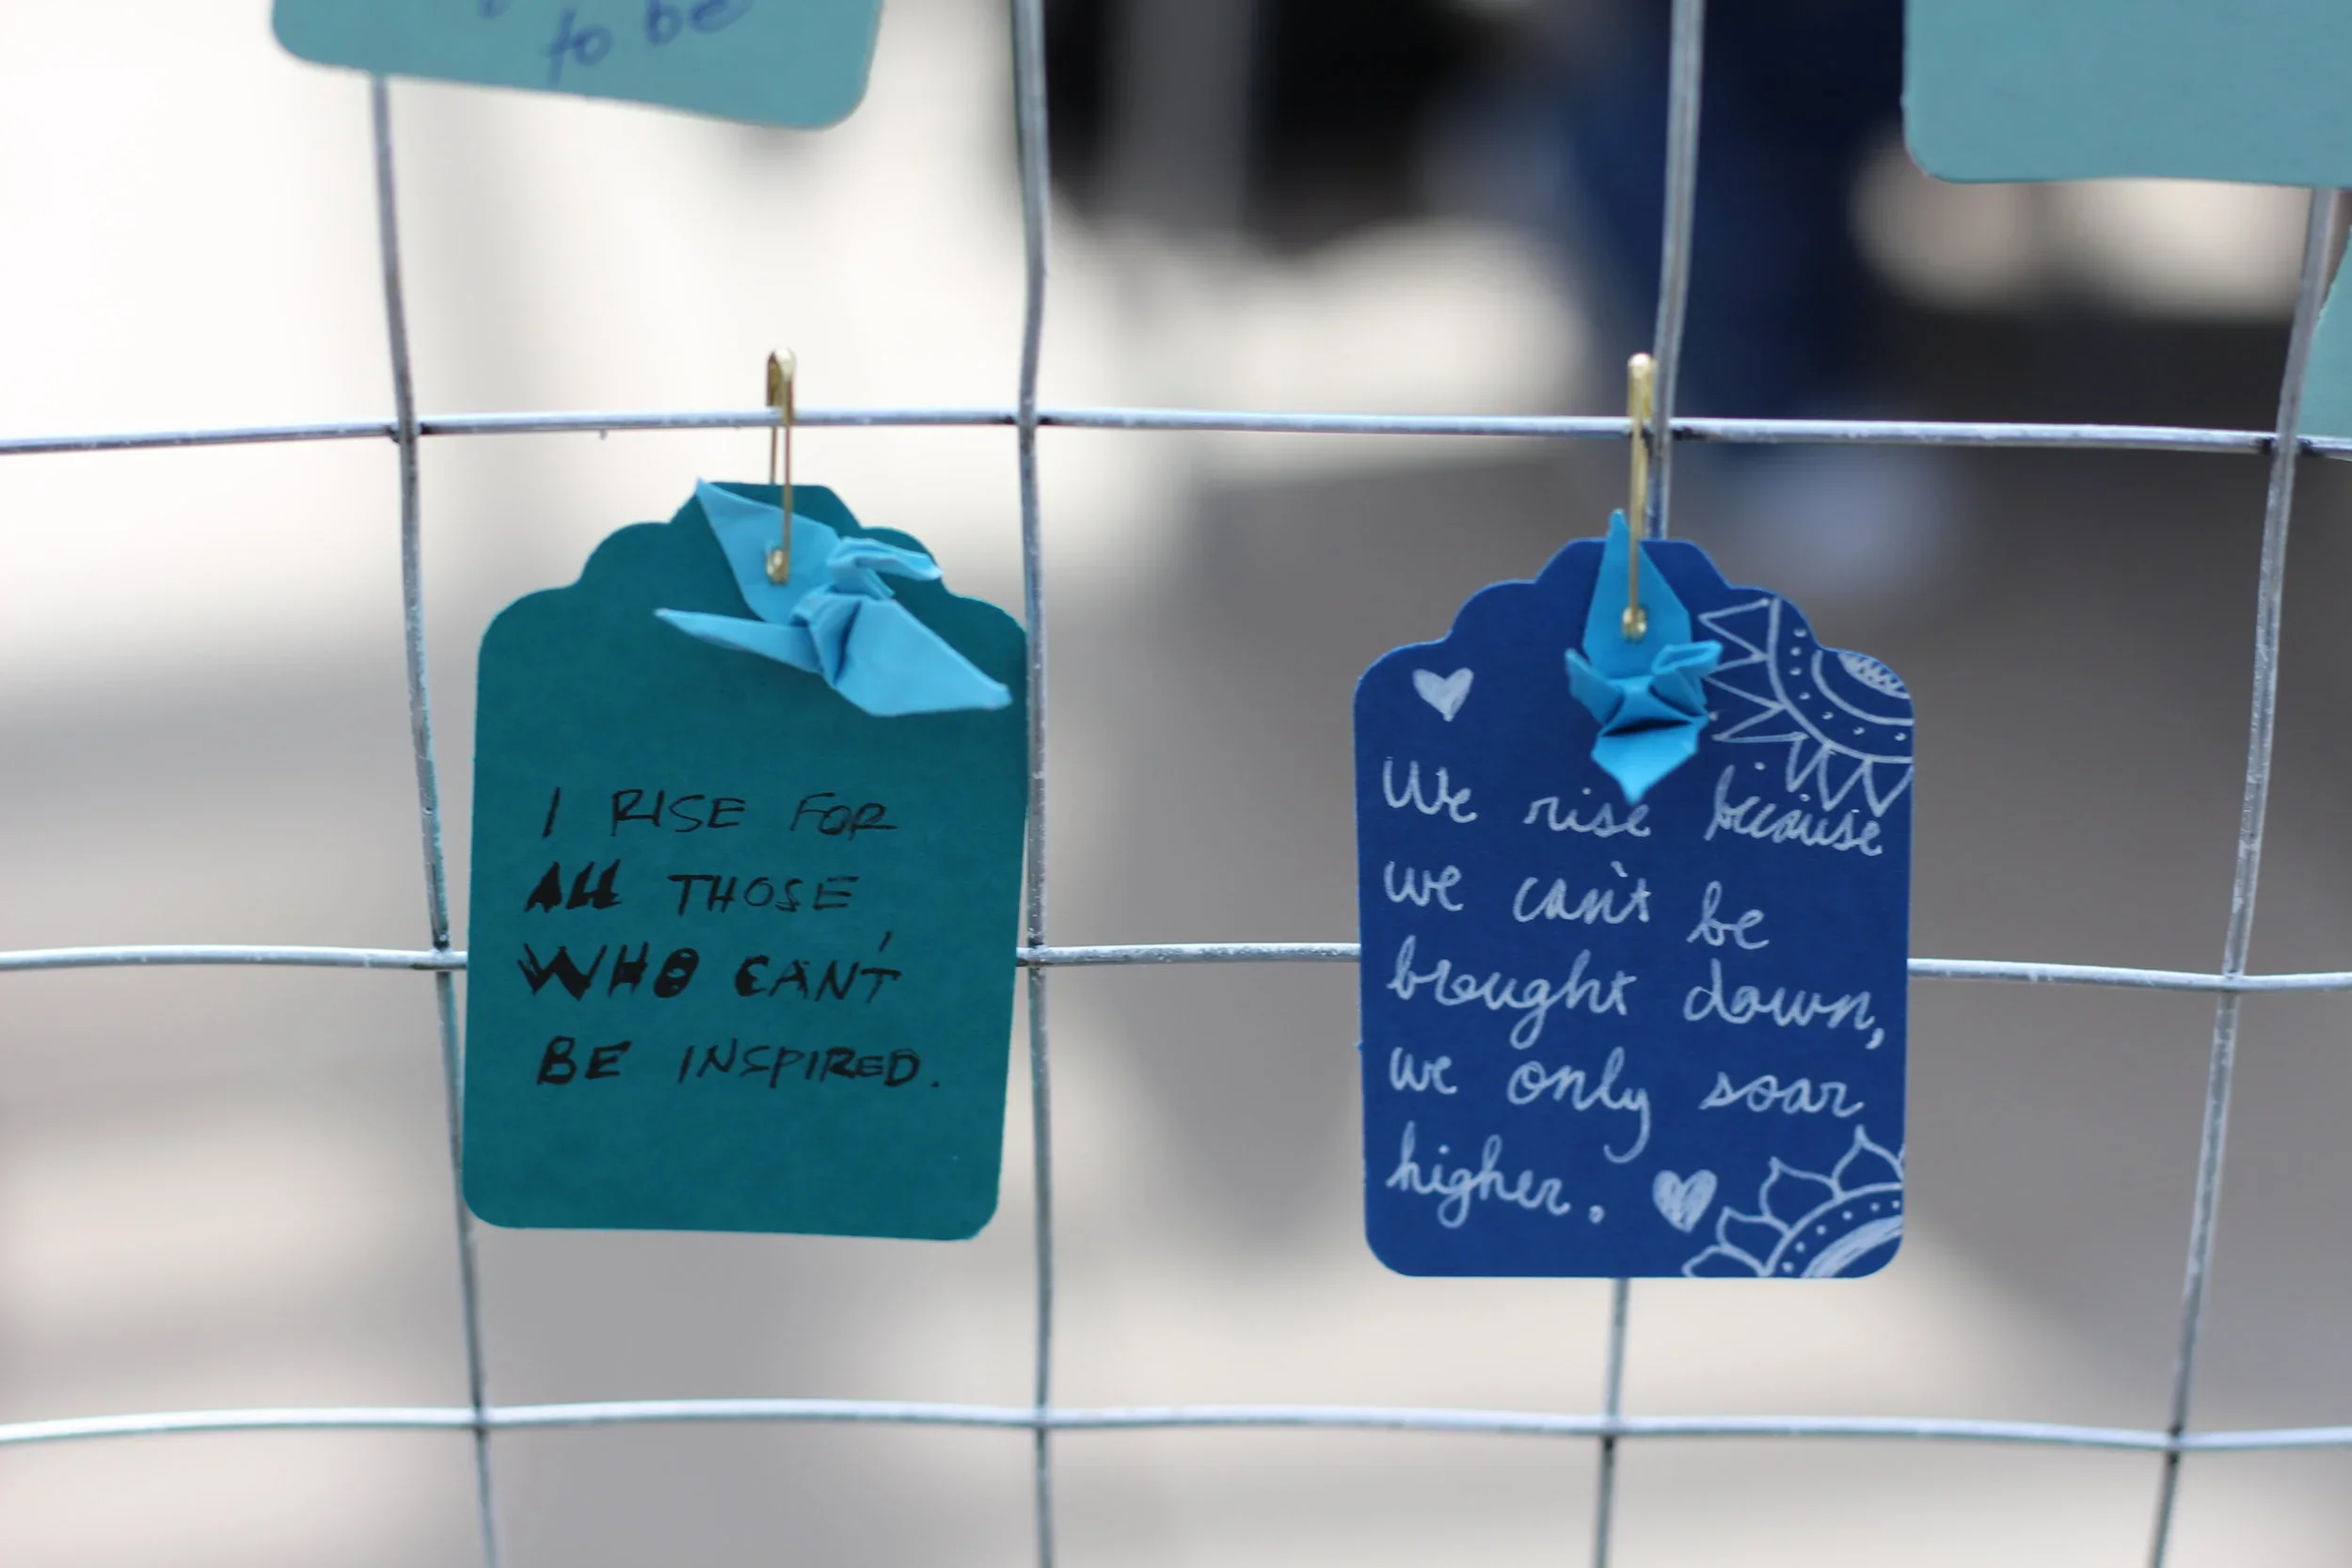 to be
I RISE FOR
ALL THOSE
WHO CAN'T
BE INSPIRED.
We rise because
we can't be
brought down,
we only soar
higher.